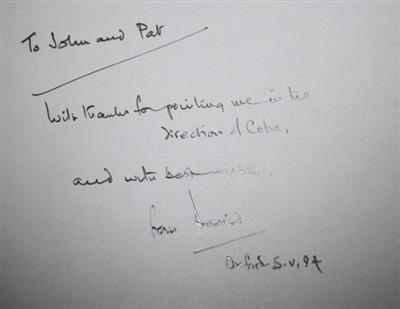 To John and Pat
With thanks for pointing me in the
direction of Coba,
and with best wishes,
from
Oxford 5.V.94